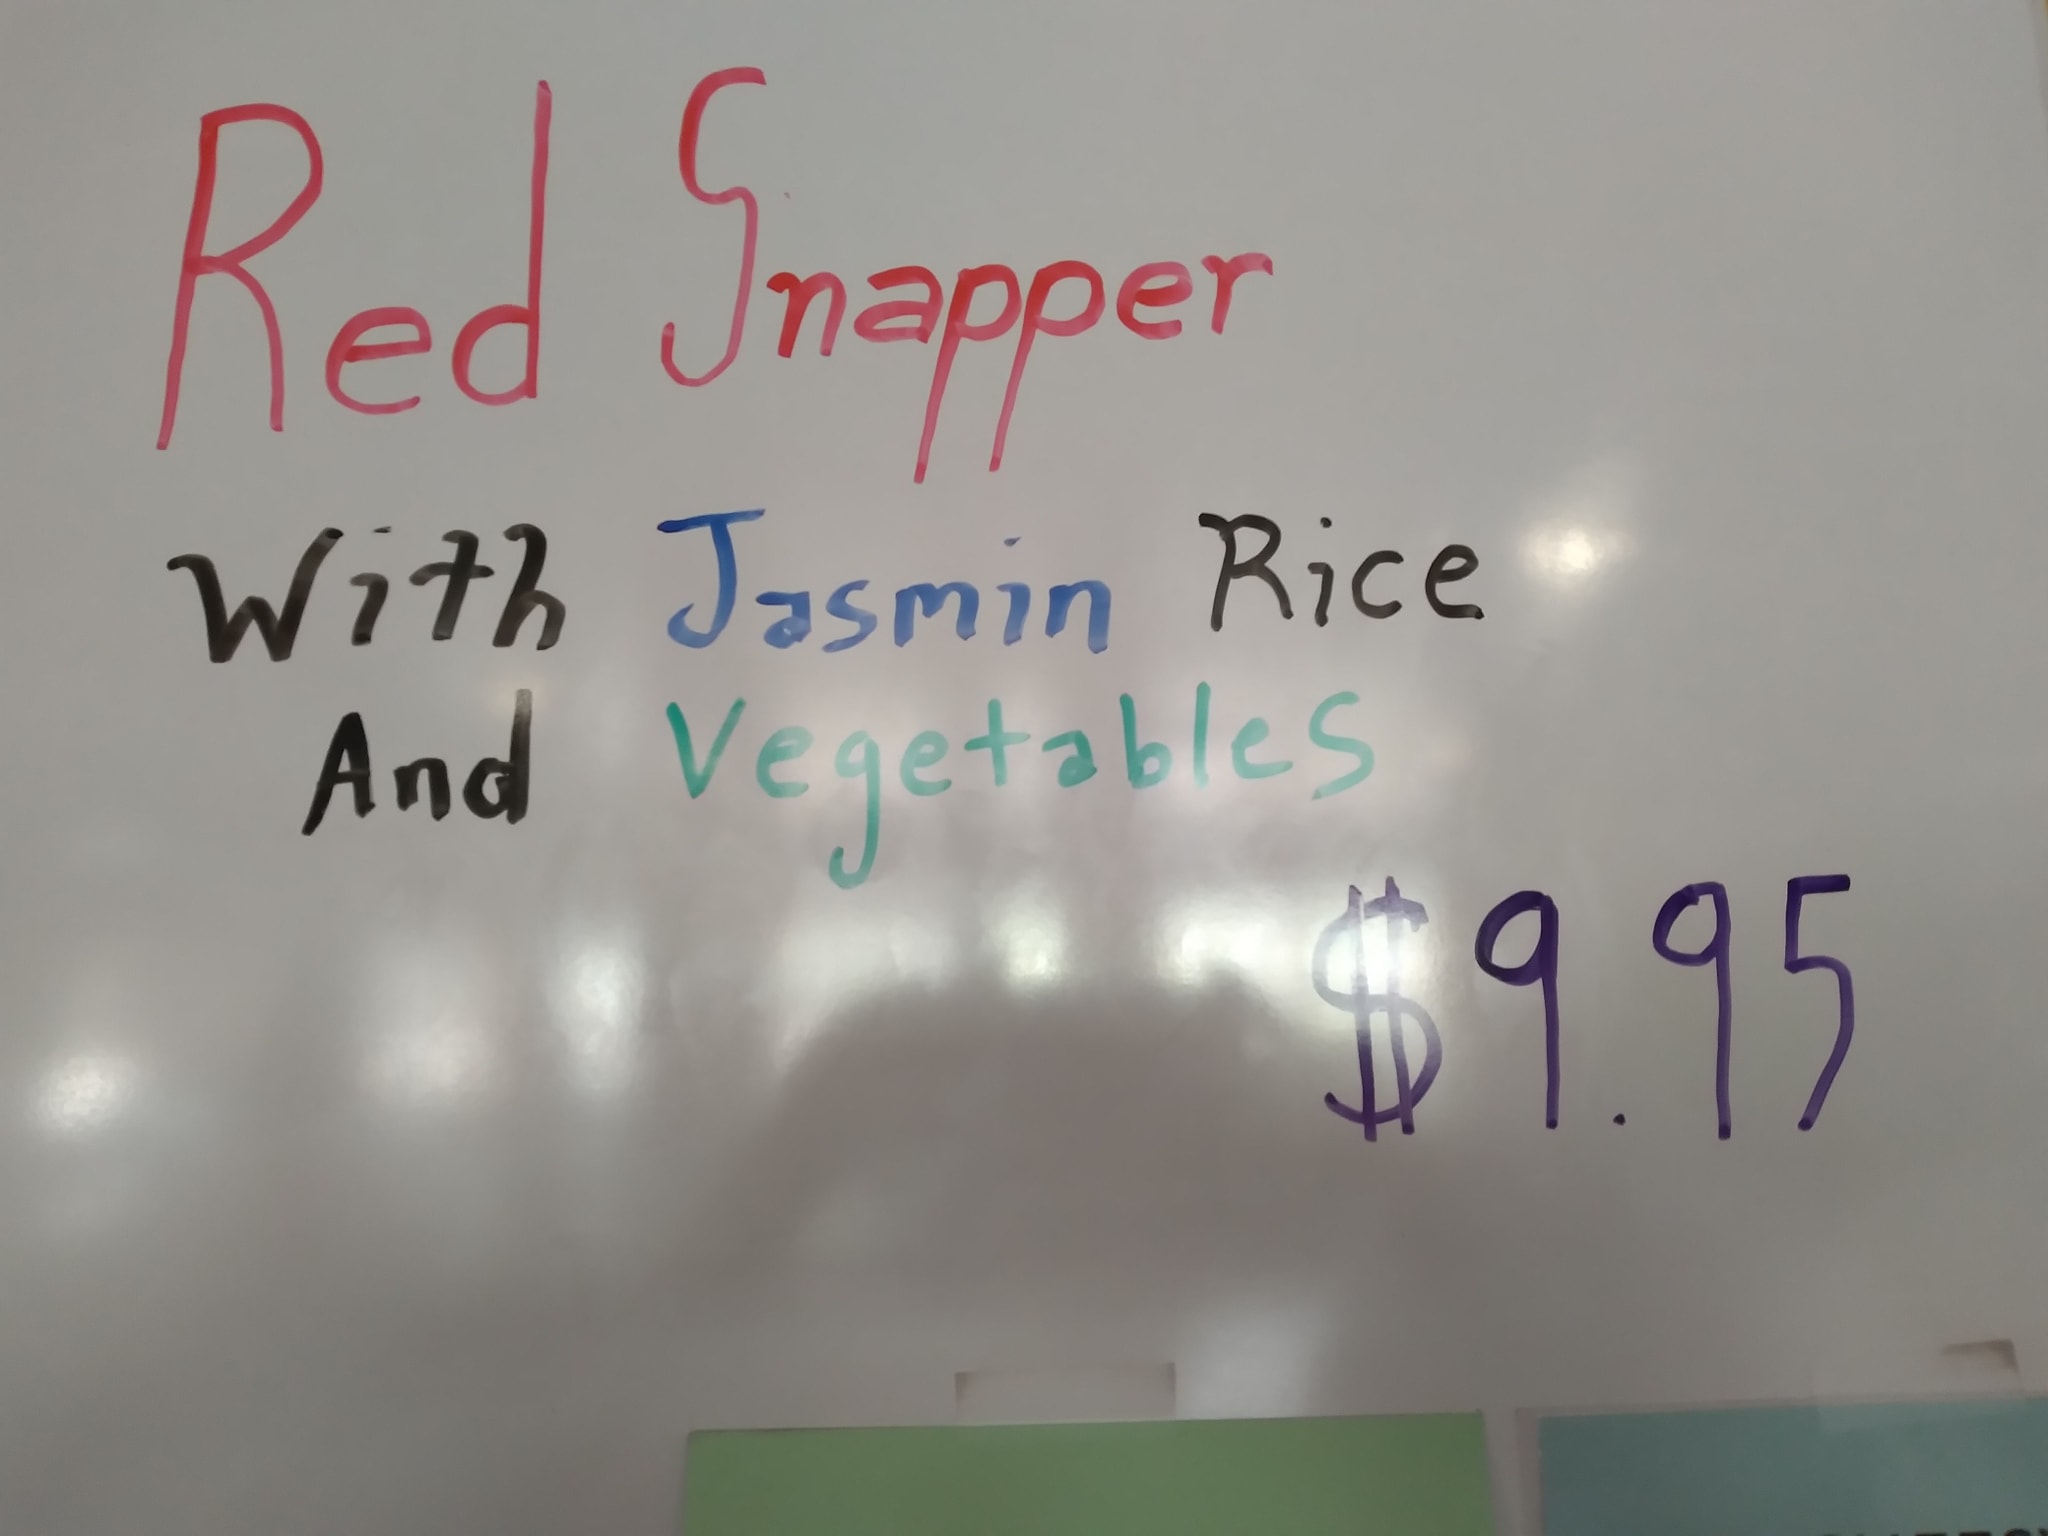 Red Snapper
With Jasmin Rice
And Vegetables
$9.95